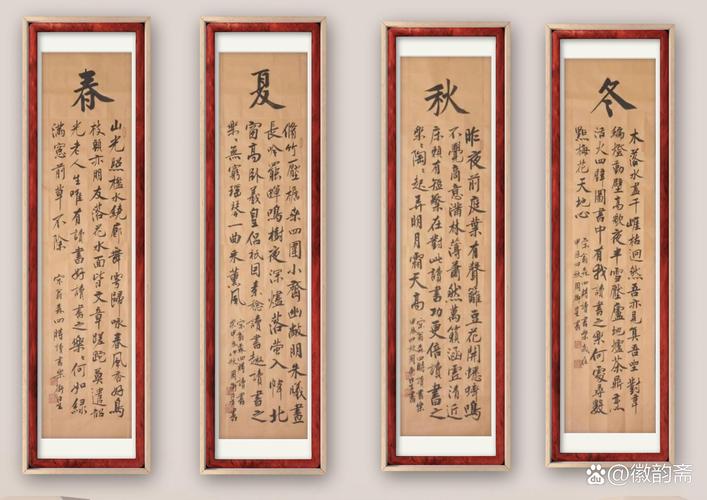 春
山光照檻水繞廊舞雩歸咏春風香好鳥
枝頭亦朋友落花水面皆文章蹉跎莫遣韶
光老人生唯有讀書好讀書之樂々何如綠
滿窗前草不除
宋翁森四時讀書樂
夏
脩竹壓檐桑四圍小齋幽敞明朱曦晝
長吟罷蟬鳴樹夜深燼落螢入幃北
窗高臥羲皇侶祇因素稔讀書趣讀書之
樂々無窮瑤琴一曲來薰風
宋翁森四時讀書
樂甲辰仲秋周
秋
昨夜前庭葉有聲籬豆花開蟋蟀鳴
不覺商意滿林薄蕭然萬籟涵虛清近
床賴有短檠在對此讀書功更倍讀書之
樂々陶々起弄明月霜天高
宋翁森四時讀書樂
甲辰仲秋周
冬
木落水盡千崖枯迥然吾亦見真吾坐對韋
編燈動壁高歌夜半雪壓廬地爐茶鼎烹
活火四壁圖書中有我讀書之樂何處尋數
點梅花天地心
宋翁森四時讀書樂
甲辰仲秋周
Bai度 @徽韵斋